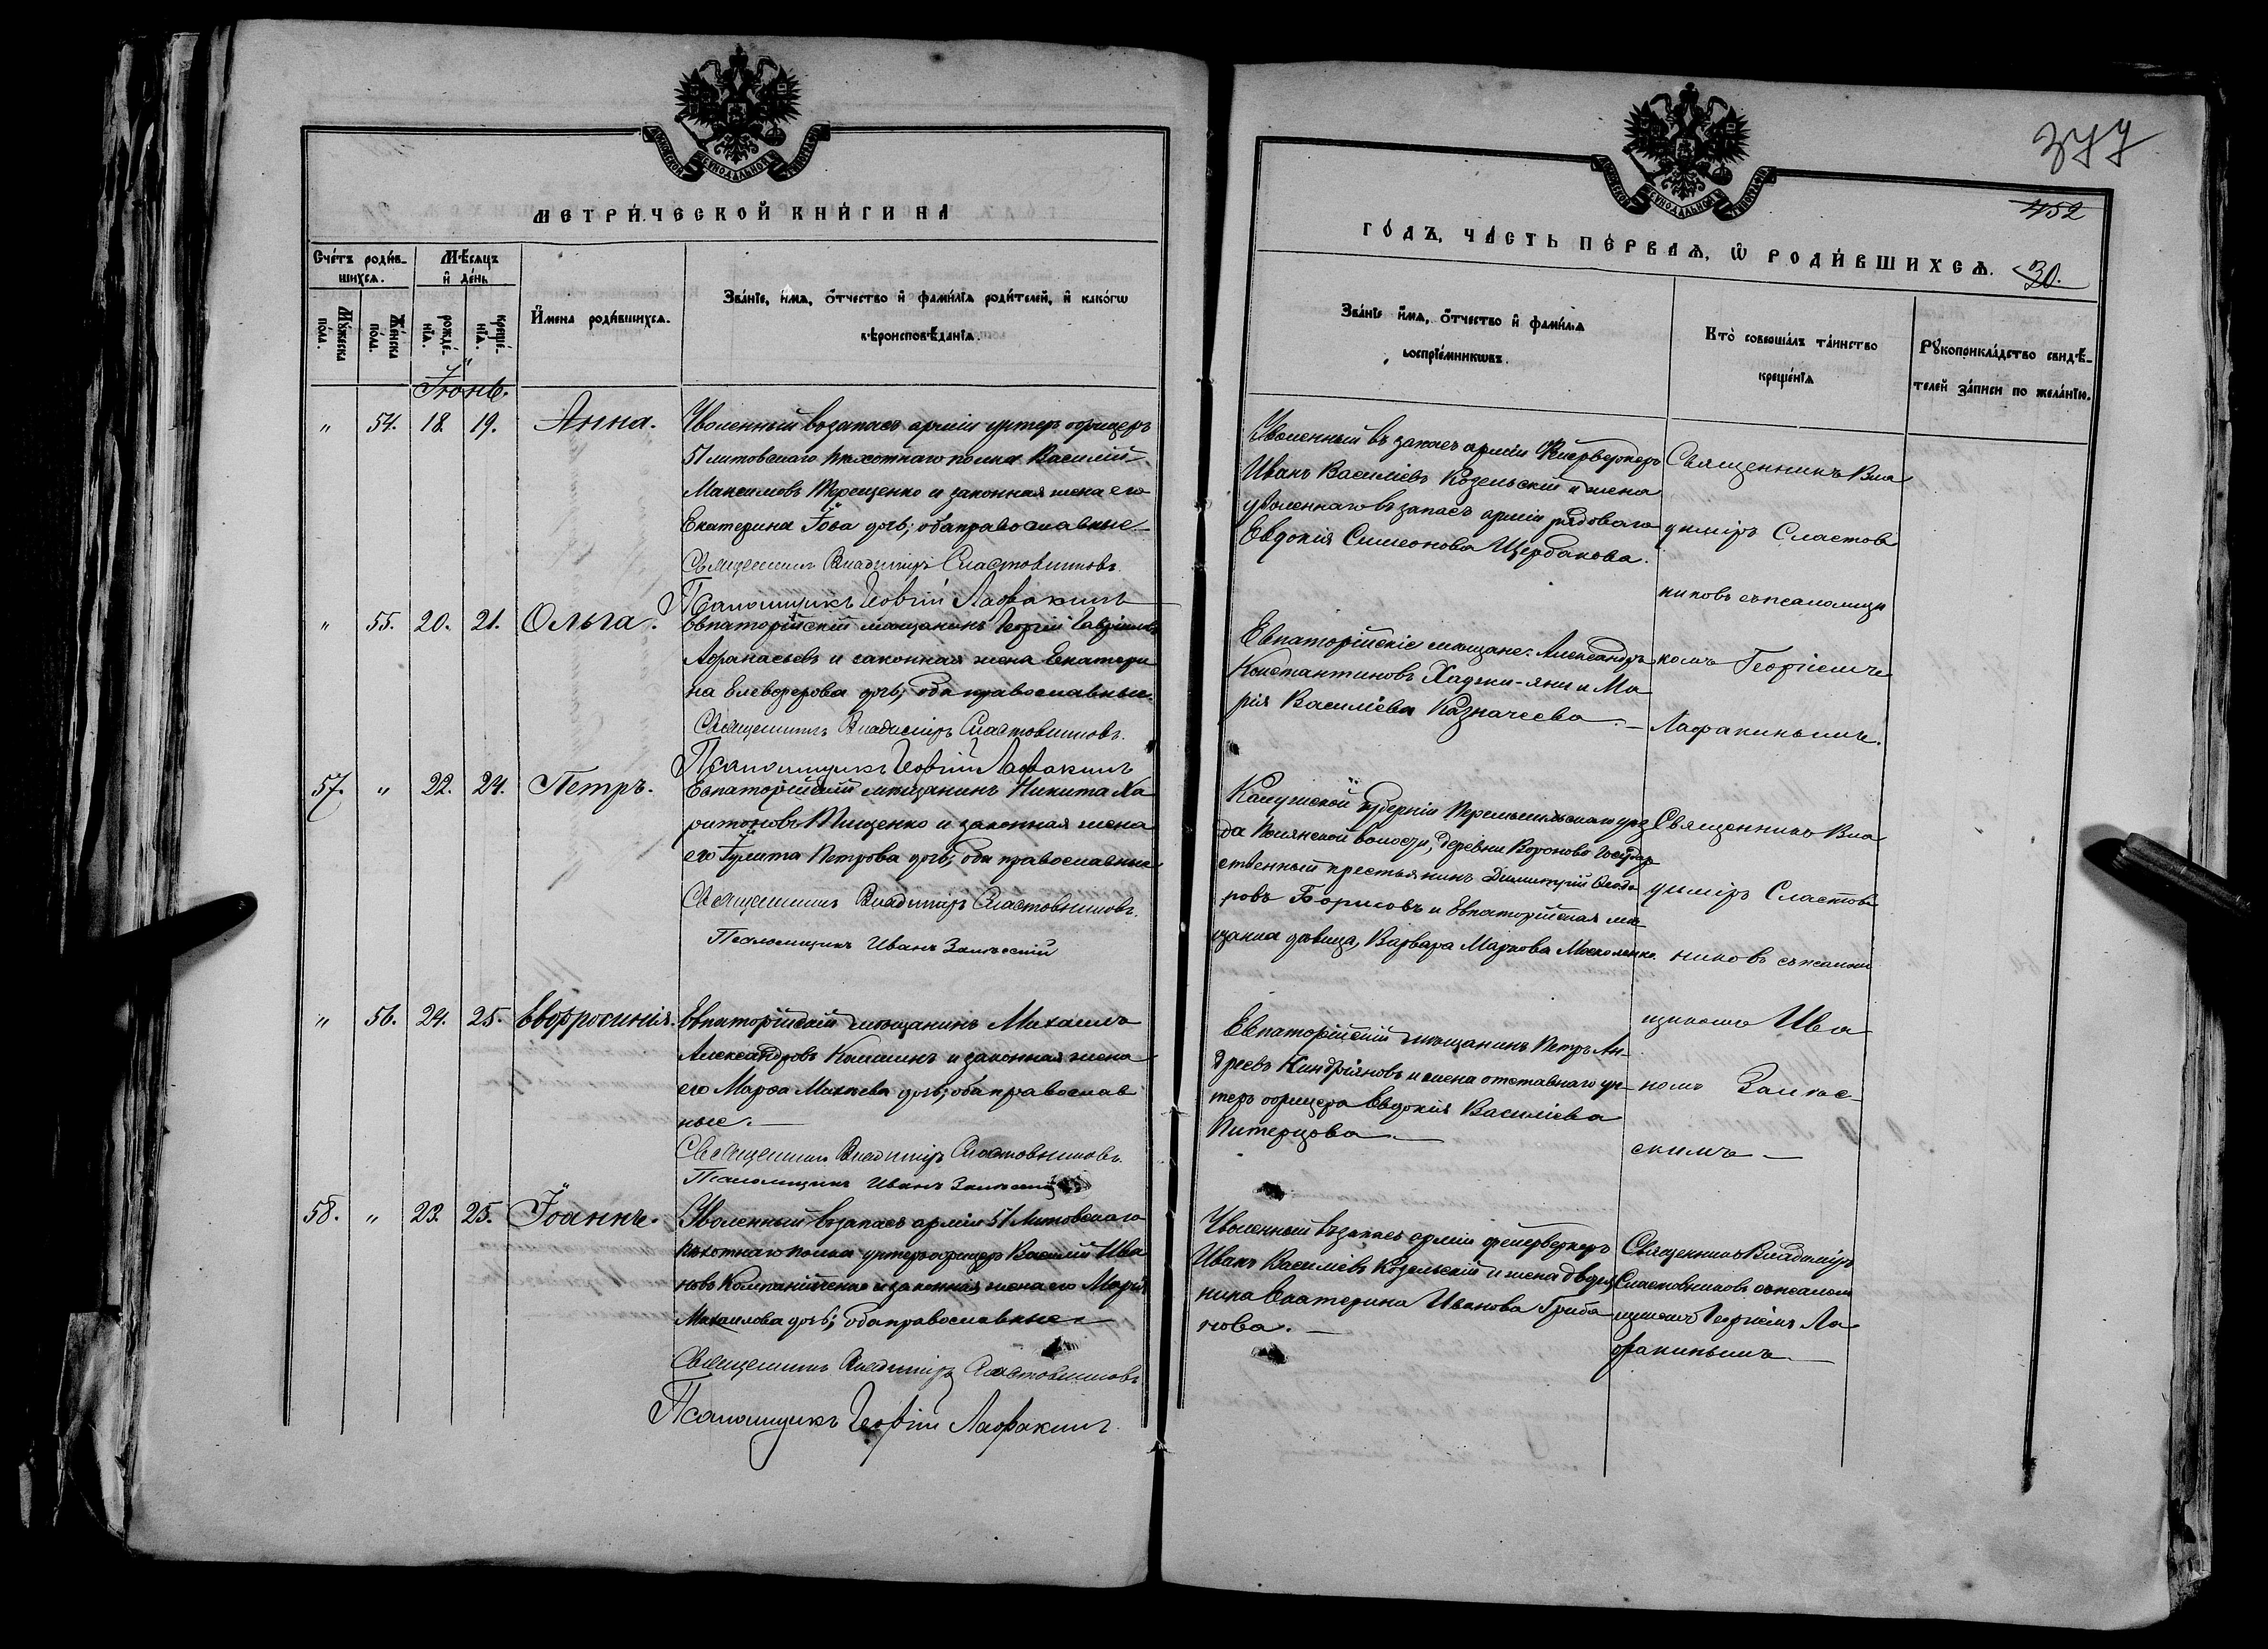 МОСКОВСКОЙ СѴНОДАЛЬНОЙ ТИПОГРАФІИ
МЕТРИ́ЧЕСКОЙ КНИ́ГИ НА
Сче́тъ роди́в-
шихсѧ.
Мѣ́сѧцъ
и҆ де́нь
Мꙋ́жеска
по́ла.
Же́нска
по́ла.
рожде́-
нїѧ.
креще́-
нїѧ.
И҆мена роди́вшихсѧ.
Зва́нїе, и҆́мѧ, ѻ҆́тчество и҆ фами́лїѧ роди́телей, и҆ како́гѡ
вѣроисповѣ́данїѧ.
Іюнь.
" 54. 18. 19. Анна.
Уволенный въ запасъ арміи унтеръ офицеръ
51 литовскаго пѣхотнаго полка Василій
Максимовъ Терещенко и законная жена его
Екатерина Іова дочь; оба православные
Священникъ Владиміръ Сластовниковъ.
Псаломщикъ Георгій Лафакинъ
" 55. 20. 21. Ольга.
Евпаторійскій мѣщанинъ Георгій Гавріиловъ
Афанасьевъ и законная жена Екатери
на Елевферова дочь; оба православные.
Священникъ Владиміръ Сластовниковъ.
Псаломщикъ Георгій Лафакинъ
57. " 22. 24. Петръ.
Евпаторійскій мѣщанинъ Никита Ха
ритоновъ Тищенко и законная жена
его Іулита Петрова дочь; оба православные
Священникъ Владиміръ Сластовниковъ.
Псаломщикъ Иванъ Залѣсскій
" 56. 24. 25. Евфросинія.
Евпаторійскій мѣщанинъ Михаилъ
Александровъ Калашинъ и законная жена
его Марѳа дочь; оба православ
ные.
Священникъ Владиміръ Сластовниковъ.
Псаломщикъ Иванъ Залѣсскій
58. " 23. 25. Іоаннъ.
Уволенный въ запасъ арміи 51 Литовскаго
пѣхотнаго полка унтеръ офицеръ Василій Ива
новъ Компанійченко и законная жена его Марія
Михаилова дочь; оба православные
Священникъ Владиміръ Сластовниковъ
Псаломщикъ Георгій Лафакинъ
377
452
МОСКОВСКОЙ СѴНОДАЛЬНОЙ ТИПОГРАФІИ
ГО́ДЪ, ЧА́СТЬ ПЕ́РВАѦ, Ѡ҆ РОДИ́ВШИХСѦ.
30.
Зва́нїе и҆́мѧ, ѻ҆́тчество и҆ фами́лїѧ
воспрїе́мникѡвъ.
Кто̀ соверша́лъ та́инство
креще́нїѧ
Рꙋкоприкла́дство свидѣ́-
телей за́писи по жела́нїю.
Уволенный въ запасъ арміи Фейерверкеръ
Иванъ Василіевъ Козельскій и жена
уволеннаго въ запасъ арміи рядоваго
Евдокія Симеонова Щербакова.
Священникъ Вла
диміръ Сластов
никовъ съ псаломщи
комъ Георгіемъ
Лафакинымъ.
Евпаторійскіе мѣщане: Александръ
Константиновъ Хаджи-яни и Ма
рія Василіева Казначеева.
Калужской губерніи Перемышльскаго уѣз
да волости, деревни Вороново Государ
ственный крестьянинъ Димитрій Ѳеодо
ровъ Борисовъ и Евпаторійская мѣ
щанка дѣвица, Варвара Маркова Москаленко.
Священникъ Вла
диміръ Сластов
никовъ съ псалом
щикомъ Ива
номъ Залѣс-
скимъ
Евпаторійскій мѣщанинъ Петръ Ан-
дреевъ Киндріановъ и жена отставнаго ун-
теръ офицера Евдокія Василіева
Питерцова.
Уволенный въ запасъ арміи фейерверкеръ
Иванъ Василіевъ Козельскій и жена
Екатерина Иванова Гриба
нова.
Священникъ Владиміръ
Сластовниковъ съ псалом
щикомъ Георгіемъ Ла
факинымъ.